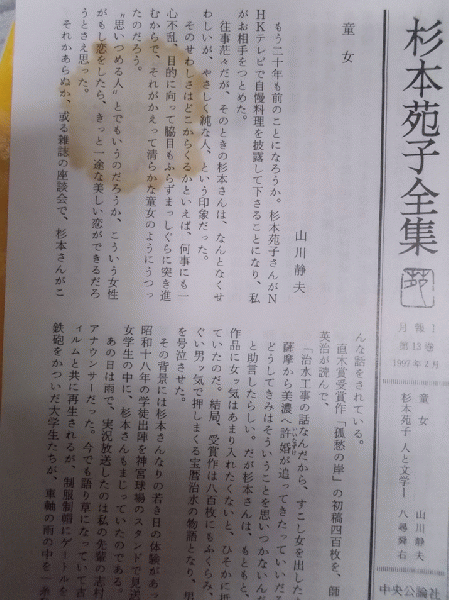 杉本苑子全集
月報1
第13巻
1997年2月
童女 山川静夫
杉本苑子 人と文学1 八尋舜右
中央公論社
童女
山川静夫
もう二十年も前のことになろうか。杉本苑子さんがN
HKテレビで自慢料理を披露して下さることになり、私
がお相手をつとめた。
往事茫々だが、そのときの杉本さんは、なんとなくせ
わしいが、やさしく純な人、という印象だった。
そのせわしさはどこからくるかといえば、何事にも一
心不乱、目的に向って脇目もふらずまっしぐらに突き進
むからで、それがかえって清らかな童女のようにうつっ
たのだろう。
“思いつめる人”とでもいうのだろうか、こういう女性
がもし恋をしたら、きっと一途な美しい恋ができるだろ
うとさえ思った。
それかあらぬか、或る雑誌の座談会で、杉本さんがこ
んな話をされている。
直木賞受賞作「孤愁の岸」の初稿四百枚を、師
英治が読んで、
「治水工事の話なんだから、すこし女を出した
薩摩から美濃へ許婚が追ってきたっていいだ
どうしてきみはそういうことを思いつかないんだ
と助言したらしい。だが杉本さんは、もともと、
作品に女ッ気はあまり入れたくないと、ひそかに
ていたのだ。結局、受賞作は八百枚にもふくらみ、
ぐい男ッ気で押しまくる宝暦治水の物語となり、
を号泣させた。
その背景には杉本さんなりの若き日の体験があっ
昭和十八年の学徒出陣を神宮球場のスタンドで見送
女学生の中に、杉本さんもまじっていたのである。
あの日は雨で、実況放送したのは私の先輩の志村
アナウンサーだった。今でも語り草になっていて
ィルムと共に再生されるが、制服制帽にゲートルを
鉄砲をかついだ大学生たちが、車軸の雨の中を一糸